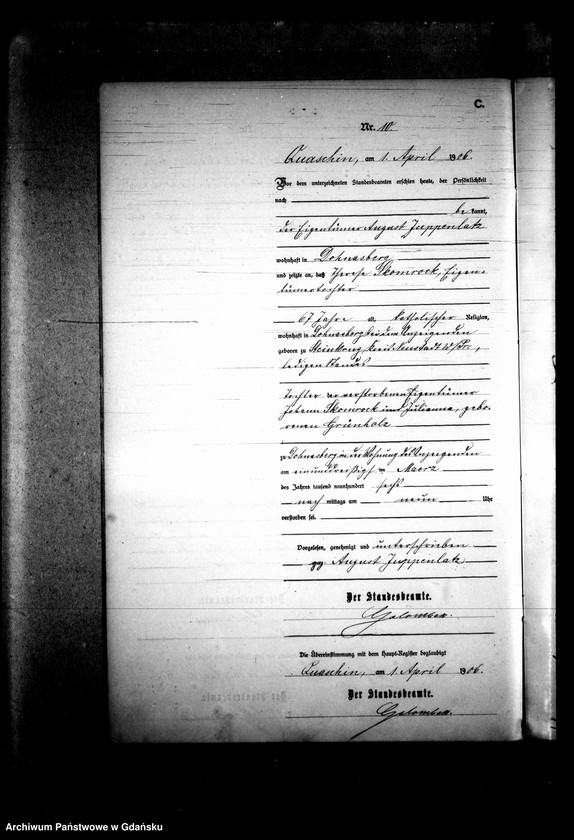 C.
Nr. 10.
Quaschin, am 1. April 1906.
Vor dem unterzeichneten Standesbeamten erschien heute, der Persönlichkeit
nach
be kannt,
der Eigentümer August Juppenlatz
wohnhaft in Dohnasberg
und zeigte an, daß Therese Skomrock, Eigen-
tümertochter
67 Jahre alt, katholischer Religion,
wohnhaft in Dohnasberg bei dem Anzeigenden
geboren zu Steinkrug, Kreis Neustadt W/Pr.,
ledigen Standes
Tochter der verstorbenen Eigentümer
Johann Skomrock und Julianna, gebo-
renen Grünholz
zu Dohnasberg in der Wohnung des Anzeigenden
am einunddreißigsten Maerz
des Jahres tausend neunhundert sechs
nach mittags um neun Uhr
verstorben sei.
Vorgelesen, genehmigt und unterschrieben
gg August Juppenlatz
Der Standesbeamte.
Golombek.
Die Übereinstimmung mit dem Haupt-Register beglaubigt
Quaschin, am 1. April 1906.
Der Standesbeamte.
Golombek.
Archiwum Państwowe w Gdańsku